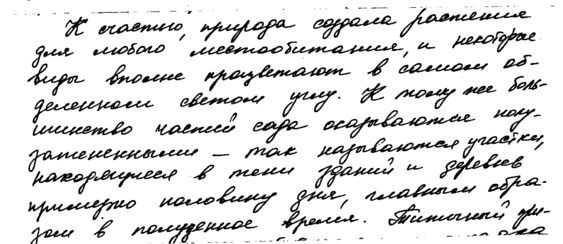 К счастью, природа создала растения
для любого местообитания, и некоторые
виды вполне процветают в самом об-
деленном светом углу. К тому же боль-
шинство частей сада оказываются полу-
затененными — так называются участки,
находящиеся в тени зданий и деревьев
примерно половину дня, главным обра-
зом в полуденное время. Типичный